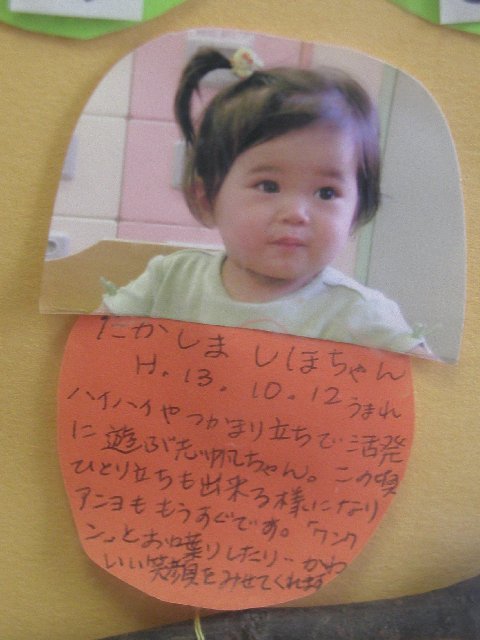 たかしま しほちゃん
H.13.10.12うまれ
ハイハイやつかまり立ちで活発
に遊ぶ志帆ちゃん。この喫
ひとり立ちも出来る様になり
アンヨももうすぐです。「ワンワ
ン」とお喋りしたり…かわ
いい笑顔をみせてくれます